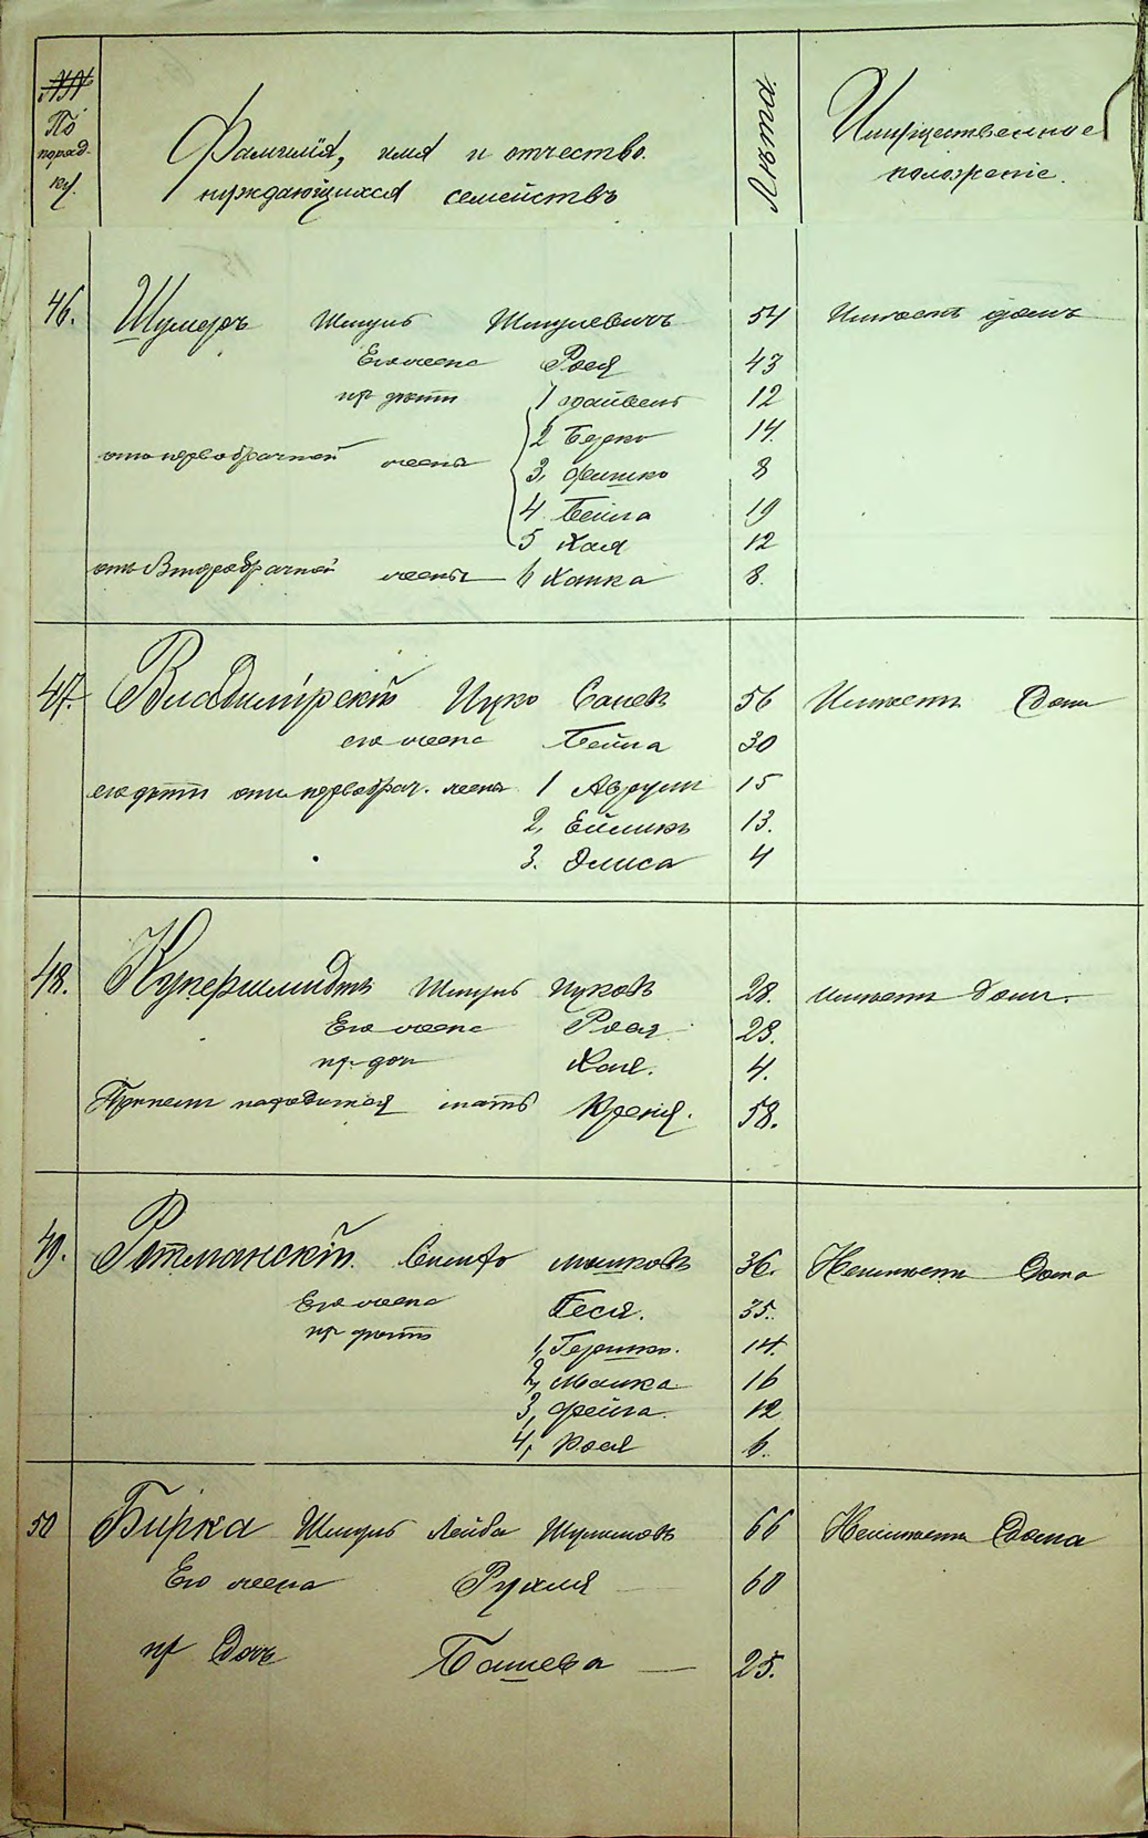 №№
По
поряд-
ку.
Фамилія, имя и отчество
нуждающихся семействъ
Лѣта.
Имущественное
положеніе.
46. Шумеръ Шмуль Шмулевичъ 54 Имѣетъ домъ
Его жена Рося 43
пр дѣти 1 12
отъ первобрачной жены 2 Берко 14.
3, Фишко 8
4 Бейла 19
5 Хая 12
отъ Второбрачной жены 6 Ханка 8.
47. Владимірскій Ицко 56 Имѣетъ Дом
его жена Бейла 30
его дѣти отъ первобрач. жены 1 Аврум 15
2, 13.
3. 4
48. Купершмидтъ Шмуль Ицковъ 28. имѣетъ дом.
Его жена Рося 28.
пр. доч Хая. 4.
При нем находится мать Креня. 58.
49. Ротманскій. мошковъ 36. Неимѣетъ Дома
Его жена Геся. 35.
пр дѣти
1, Гершко. 14.
2, Малка 16
3, Фейга 12
4, Рося 6.
50 Бирка Шмуль Лейба 66 Неимѣетъ Дома
Его жена Рухля 60
пр Дочь Башева 25.